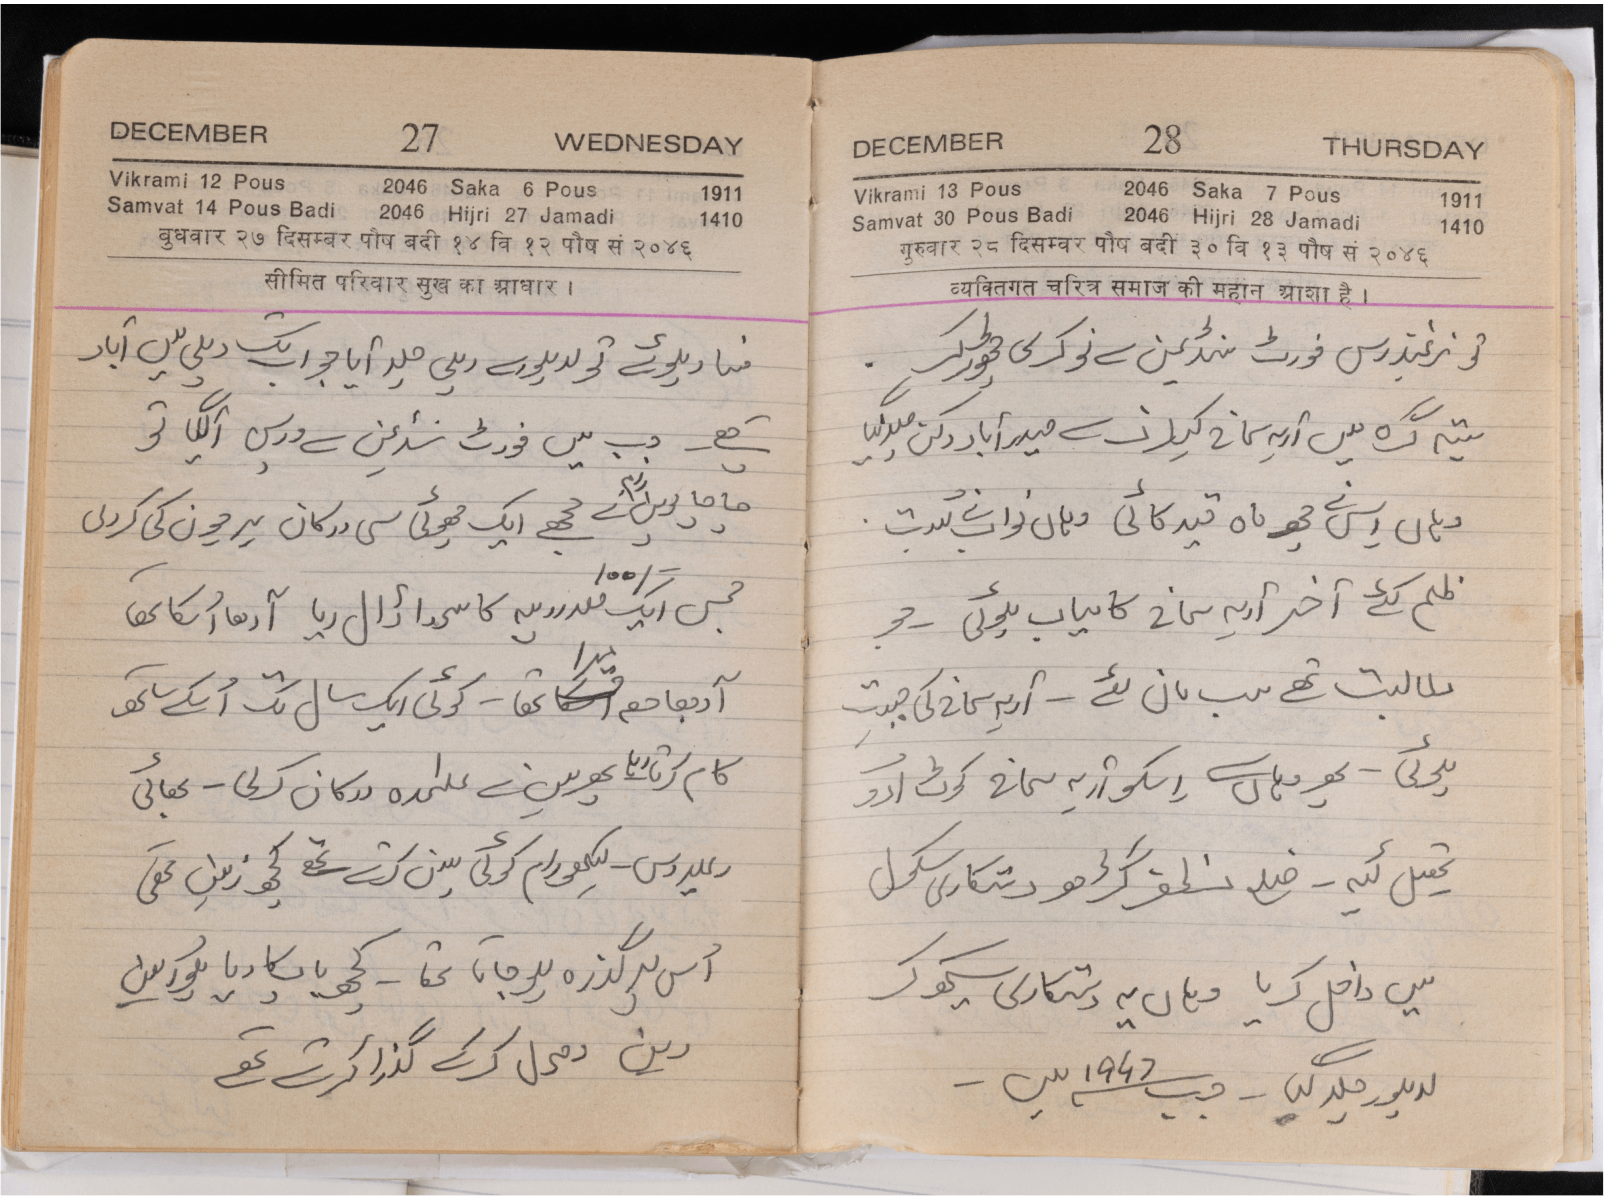 DECEMBER 28 THURSDAY
Vikrami 13 Pous 2046 Saka 7 Pous 1911
Samvat 30 Pous Badi 2046 Hijri 28 Jamadi 1410
गुरुवार २८ दिसम्वर पौष बदी ३० वि १३ पौष सं २०४६
व्यक्तिगत चरित्र समाज की महान आशा है ।
تو فورٹ سنڈیمن سے نوکری چھوڑ کر
ستیہ گرہ میں آریہ سماج کیطرف سے حیدرآباد دکن چلا گیا
وہاں اِس نے چھ ماہ قید کاٹی وہاں نواب نے بہت
ظلم کئے آخر آریہ سماج کامیاب ہوئی ۔ جو
مطالبت تھے سب مان لئے ۔ آریہ سماج کی جیت
ہوئی ۔ پھر وہاں سے اِسکو آریہ سماج کوٹ ادُو
تحصیل لیہ ۔ ضلع مظفر گڑھ دستکاری سکول
میں داخل کریا وہاں یہ دستکاری سیکھ کر
لاہور چلا گیا ۔ جب 1947 میں ۔
DECEMBER 27 WEDNESDAY
Vikrami 12 Pous 2046 Saka 6 Pous 1911
Samvat 14 Pous Badi 2046 Hijri 27 Jamadi 1410
बुधवार २७ दिसम्बर पौष बदी १४ वि १२ पौष सं २०४६
सीमित परिवार सुख का आधार ।
فساد ہوئے تو لاہور سے دہلی چلا آیا جو اب تک دہلی میں آباد
ہے ۔ جب میں فورٹ سنڈیمن سے واپس آگیا تو
چاچا نے مجھے ایک چھوٹی سی دوکان پرچون کی کر دی
جس ایک صد روپیہ 100/- کا سودا ڈال دیا آدھا اُسکا تھا
آدھا حصہ میرا تھا ۔ کوئی ایک سال تک اُسکے ساتھ
کام کرتا رہا پھر میں نے علحدہ دوکان کرلی ۔ بھائی
لیکھو رام کوئی کرتے تھے کچھ زمین تھی
اُس پر گذرہ ہو جاتا تھا ۔ کچھ
کرکے گذرا کرتے تھے